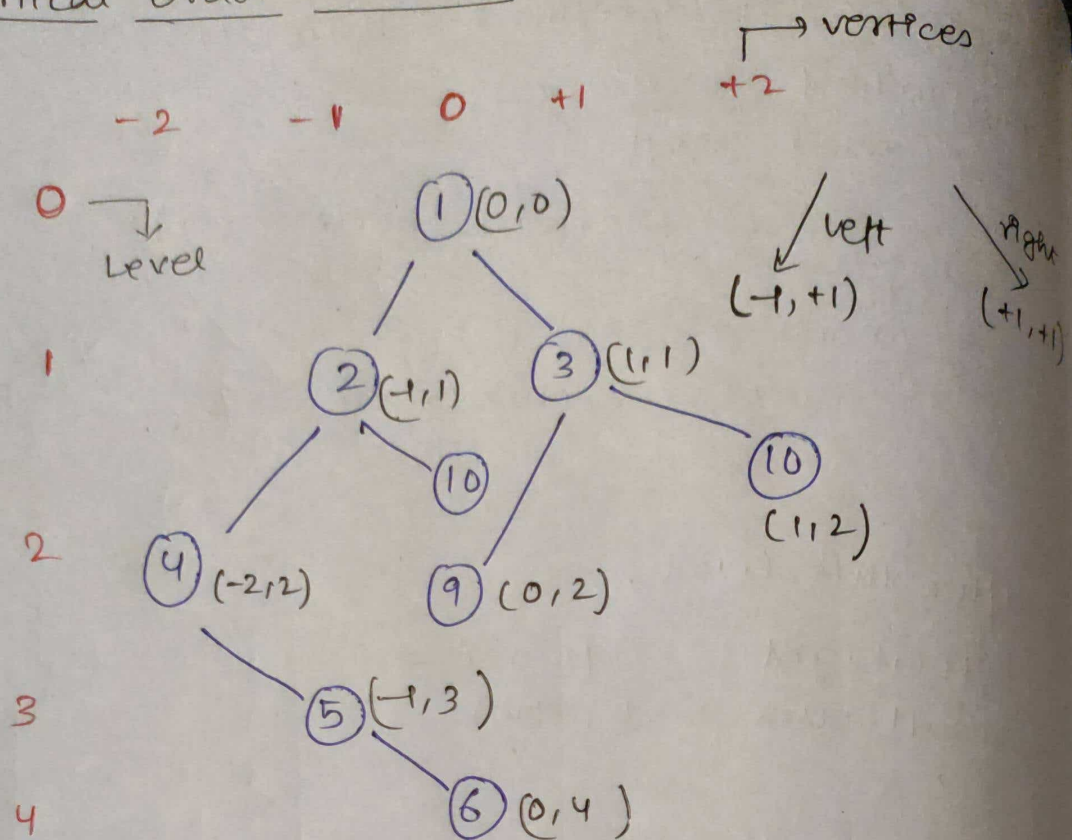 vertices
-2 -1 0 +1 +2
0 1 (0,0)
Level
left right
(-1,+1) (+1,+1)
1 2 (-1,1) 3 (1,1)
10 10
(1,2)
2 4 (-2,2) 9 (0,2)
3 5 (-1,3)
4 6 (0,4)